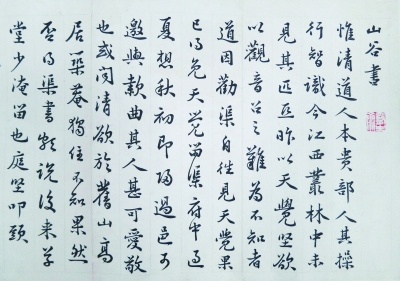 山谷书
惟清道人本贵部人其操
行智识今江西丛林中未
见其匹亞昨以天覺坚欲
以觀音召之难為不知者
道因勸渠自往見天覺果
已得免天覺留渠府中過
夏想秋初即歸過邑可
邀與款曲其人甚可愛敬
也或闻清欲於舊山高
居築菴獨住不知果然
否得渠書頗說後来草
堂少淹留也庭坚叩頭